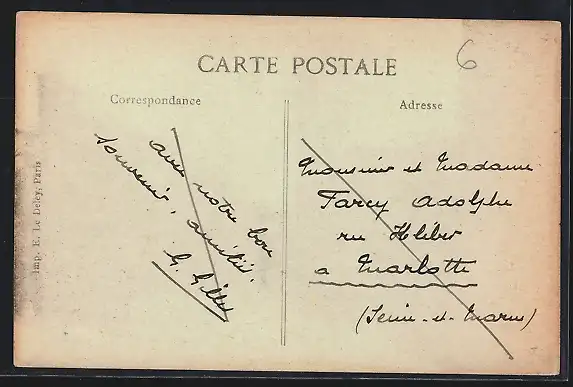 6
CARTE POSTALE
Correspondance
Adresse
avec notre bon
souvenir, amitiés
G. Gillet
Monsieur et Madame
Farcy Adolphe
rue Kléber
a Marlotte
(Seine-et-Marne)
Imp. E. Le Deley, Paris